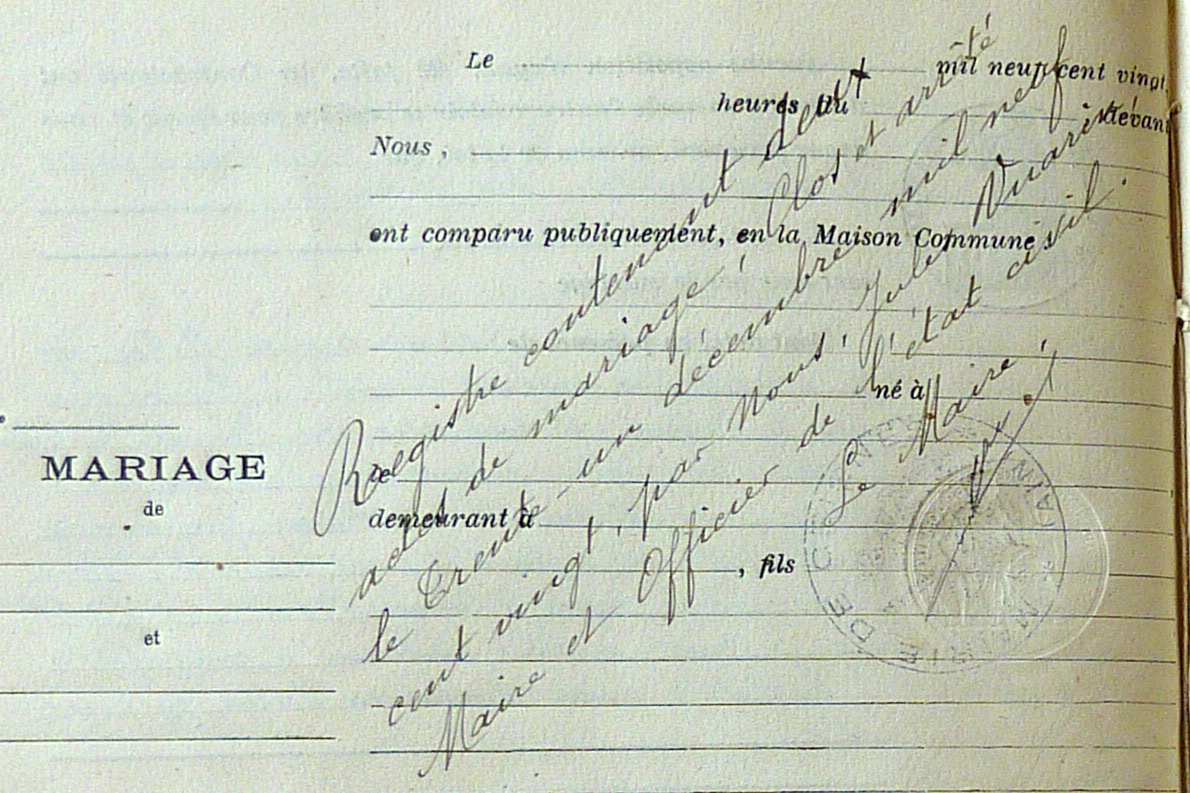 Le mil neuf cent vingt
heures du devant
Nous,
ont comparu publiquement, en la Maison Commune
né à
le
demeurant à
, fils
MARIAGE
de
et
Registre contenant deux
actes de mariage, Clos et arrêté
le Trente-un décembre mil neuf
cent vingt, par nous, Jules
Maire et Officier de l'état civil.
Le Maire,
MAIRIE DE